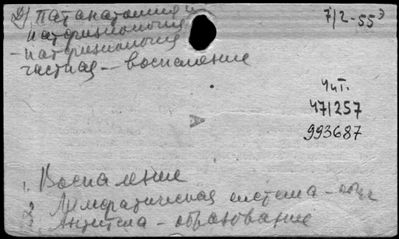 2) Патанатомия и
патфизиология
- патфизиология
частная - воспаление
7/2-55э
Чит.
47/257
993687
A
1. Воспаление
2. Лимфатическая система -
3. Антитела - образование